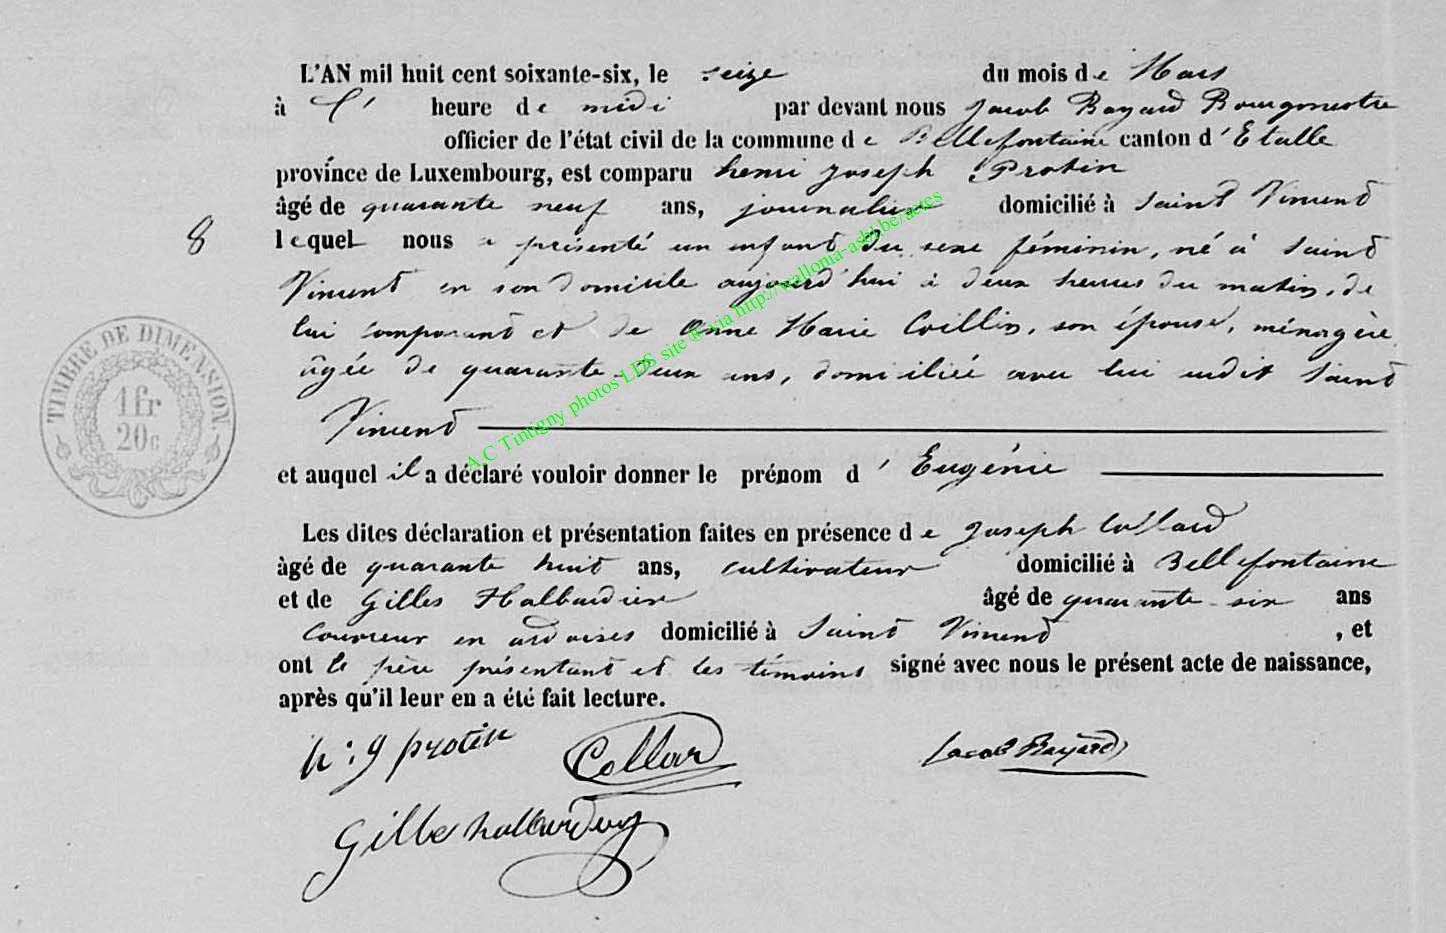 L'AN mil huit cent soixante-six, le seize du mois de Mars
à l' heure de midi par devant nous Jacob Bayard Bourgmestre
officier de l'état civil de la commune de Bellefontaine canton d'Etalle
province de Luxembourg, est comparu henri joseph Protin
âgé de quarante neuf ans, journalier domicilié à Saint Vincent
8 lequel nous a présenté un enfant du sexe féminin, né à Saint
Vincent en son domicile aujourd'hui à deux heures du matin, de
lui comparant et de Anne Marie Collin, son épouse, ménagère
âgée de quarante-deux ans, domiciliée avec lui audit Saint
Vincent
et auquel il a déclaré vouloir donner le prénom d' Eugénie
Les dites déclaration et présentation faites en présence de Joseph Collard
âgé de quarante huit ans, cultivateur domicilié à Bellefontaine
et de Gilles Halbardier âgé de quarante-six ans
Couvreur en ardoises domicilié à Saint Vincent, et
ont le père présentant et les témoins signé avec nous le présent acte de naissance,
après qu'il leur en a été fait lecture.
h: j protin Collar Jacob Bayard
Gille
TIMBRE DE DIMENSION
1 fr
20c
A.C Tintigny photos LDS site ® via http://wallonia-asbl.be/actes